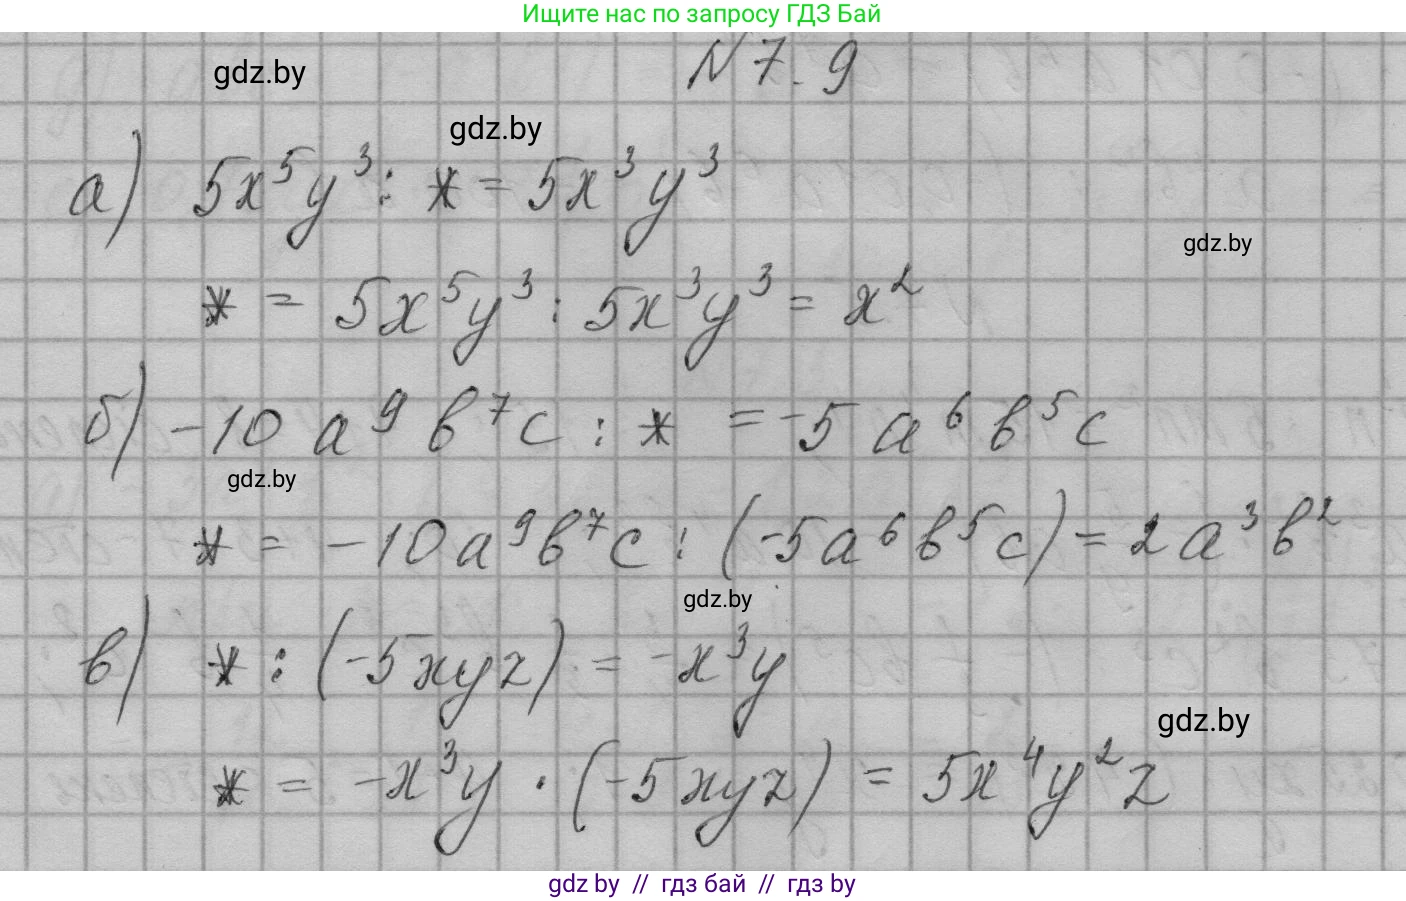 Ищите нас по запросу ГДЗ Бай
N 7.9
gdz.by
gdz.by
а) 5x⁵y³ : * = 5x³y³
gdz.by
* = 5x⁵y³ : 5x³y³ = x²
б) -10a⁹b⁷c : * = -5a⁶b⁵c
gdz.by
* = -10a⁹b⁷c : (-5a⁶b⁵c) = 2a³b²
gdz.by
в) * : (-5xyz) = -x³y
gdz.by
* = -x³y · (-5xyz) = 5x⁴y²z
gdz by // гдз бай // гдз by